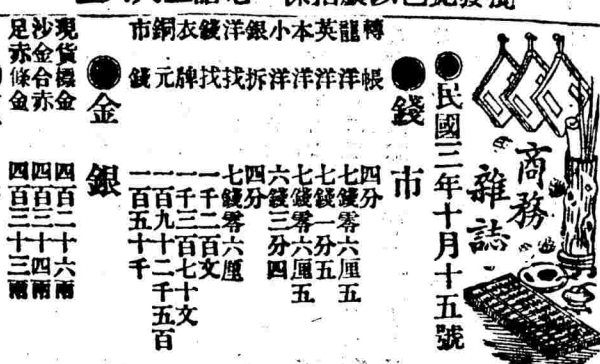 商務
雜誌
●民國三年十月十五號
●錢市
轉帳 四分
龍洋 七錢零六厘五
英洋 七錢一分五
本洋 七錢零六厘五
小洋 六錢三分四
銀拆 四分
洋找 七錢零六厘
錢找 一千二百文
衣牌 一千三百七十文
銅元 一百九十二千五百
市錢 一百五十千
●金銀
現貨標金 四百二十六兩
沙金合赤 四百三十四兩
足赤條金 四百三十三兩